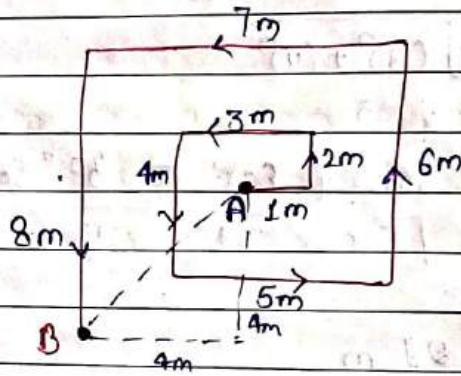 7m
3m
4m
2m
6m
A 1m
8m
5m
B
4m
4m